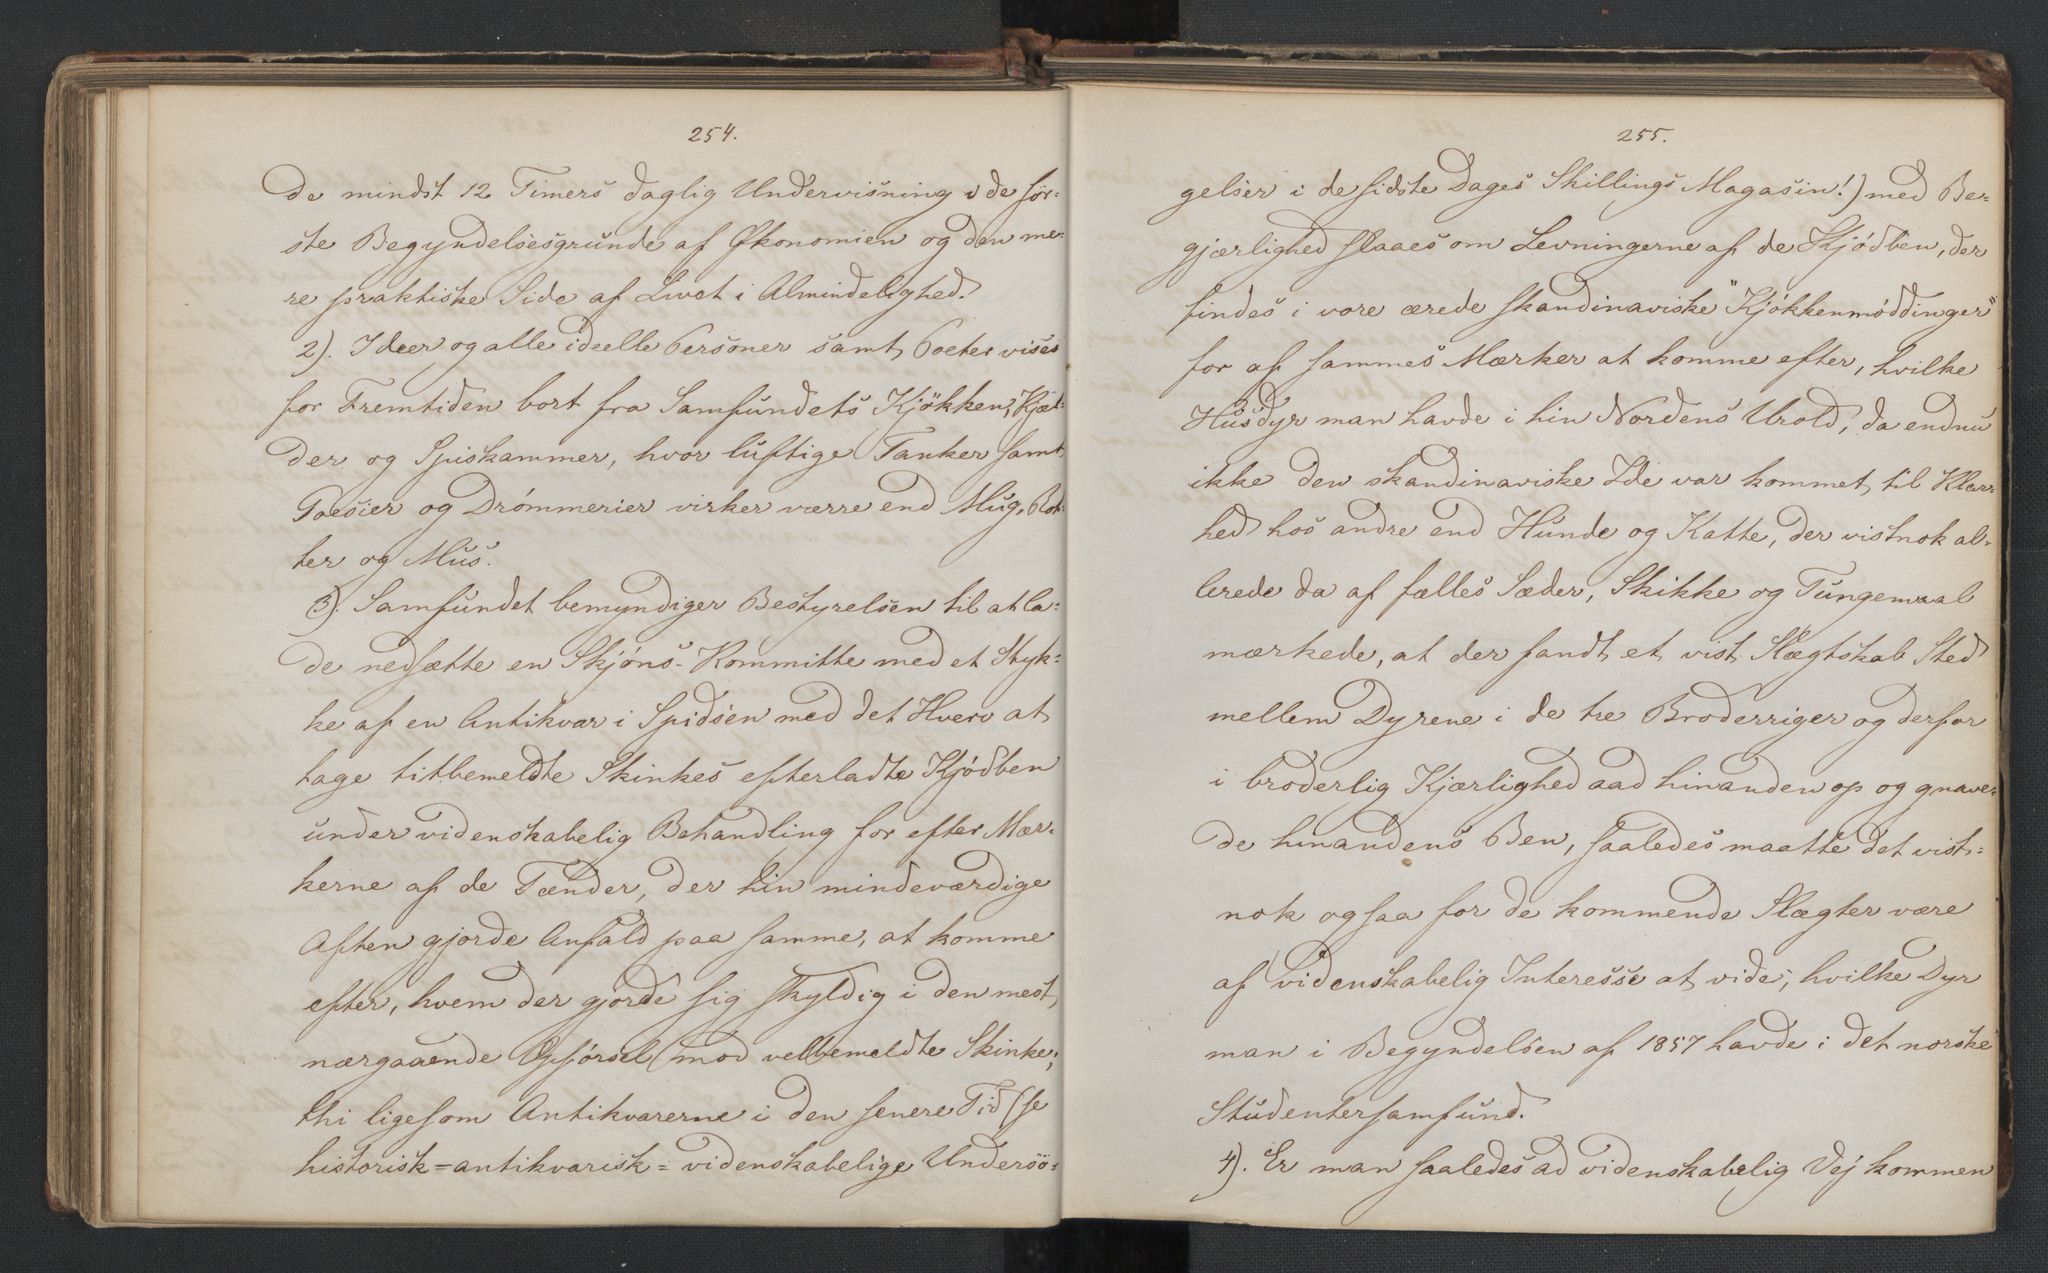 254.
de mindst 12 Timers daglig Undervisning i de før-
ste Begyndelsesgrunde af Økonomien og den me-
re praktiske Side af Livet i Almindelighed.
2). Ideer og alle ideelle Personer samt Poeter vises
for Fremtiden bort fra Samfundets Kjøkken, Kjæl-
der og Spiskammer, hvor luftige Tanker samt
Poesier og Drømmerier virker værre end Mug, Rot-
ter og Mus.
3). Samfundet bemyndiger Bestyrelsen til at la-
de nedsætte en Skjøns-Kommitte med et Styk-
ke af en Antikvar i Spidsen med det Hverv at
tage titbemeldte Skinkes efterladte Kjødben
under videnskabelig Behandling for efter Mær-
kerne af de Tænder, der hin mindeværdige
Aften gjorde Anfald paa samme, at komme
efter, hvem der gjorde sig skyldig i den mest
nærgaaende Opførsel mod velbemeldte Skinke;
thi ligesom Antikvarerne i den senere Tid (se
historisk=antikvarisk=videnskabelige Undersø-
255.
gelser i de sidste Dages Skillings Magasin!) med Be-
gjærlighed slaaes om Levningerne af de Kjødben, der
findes i vore ærede skandinaviske "Kjøkkenmøddinger"
for af sammes Mærker at komme efter, hvilke
Husdyr man havde i hin Nordens Urold, da endnu
ikke den skandinaviske Ide var kommet til Klar-
hed hos andre end Hunde og Katte, der vistnok al-
lerede da af fælles Sæder, Skikke og Tungemaal
mærkede, at der fandt et vist Slægtskab Sted
mellem Dyrene i de tre Broderriger og derfor
i broderlig Kjærlighed aad hinanden op og gnave-
de hinandens Ben, saaledes maatte det vist-
nok ogsaa for de kommende Slægter være
af videnskabelig Interesse at vide, hvilke Dyr
man i Begyndelsen af 1857 havde i det norske
Studentersamfund.
4). Er man saaledes ad videnskabelig Vej kommen